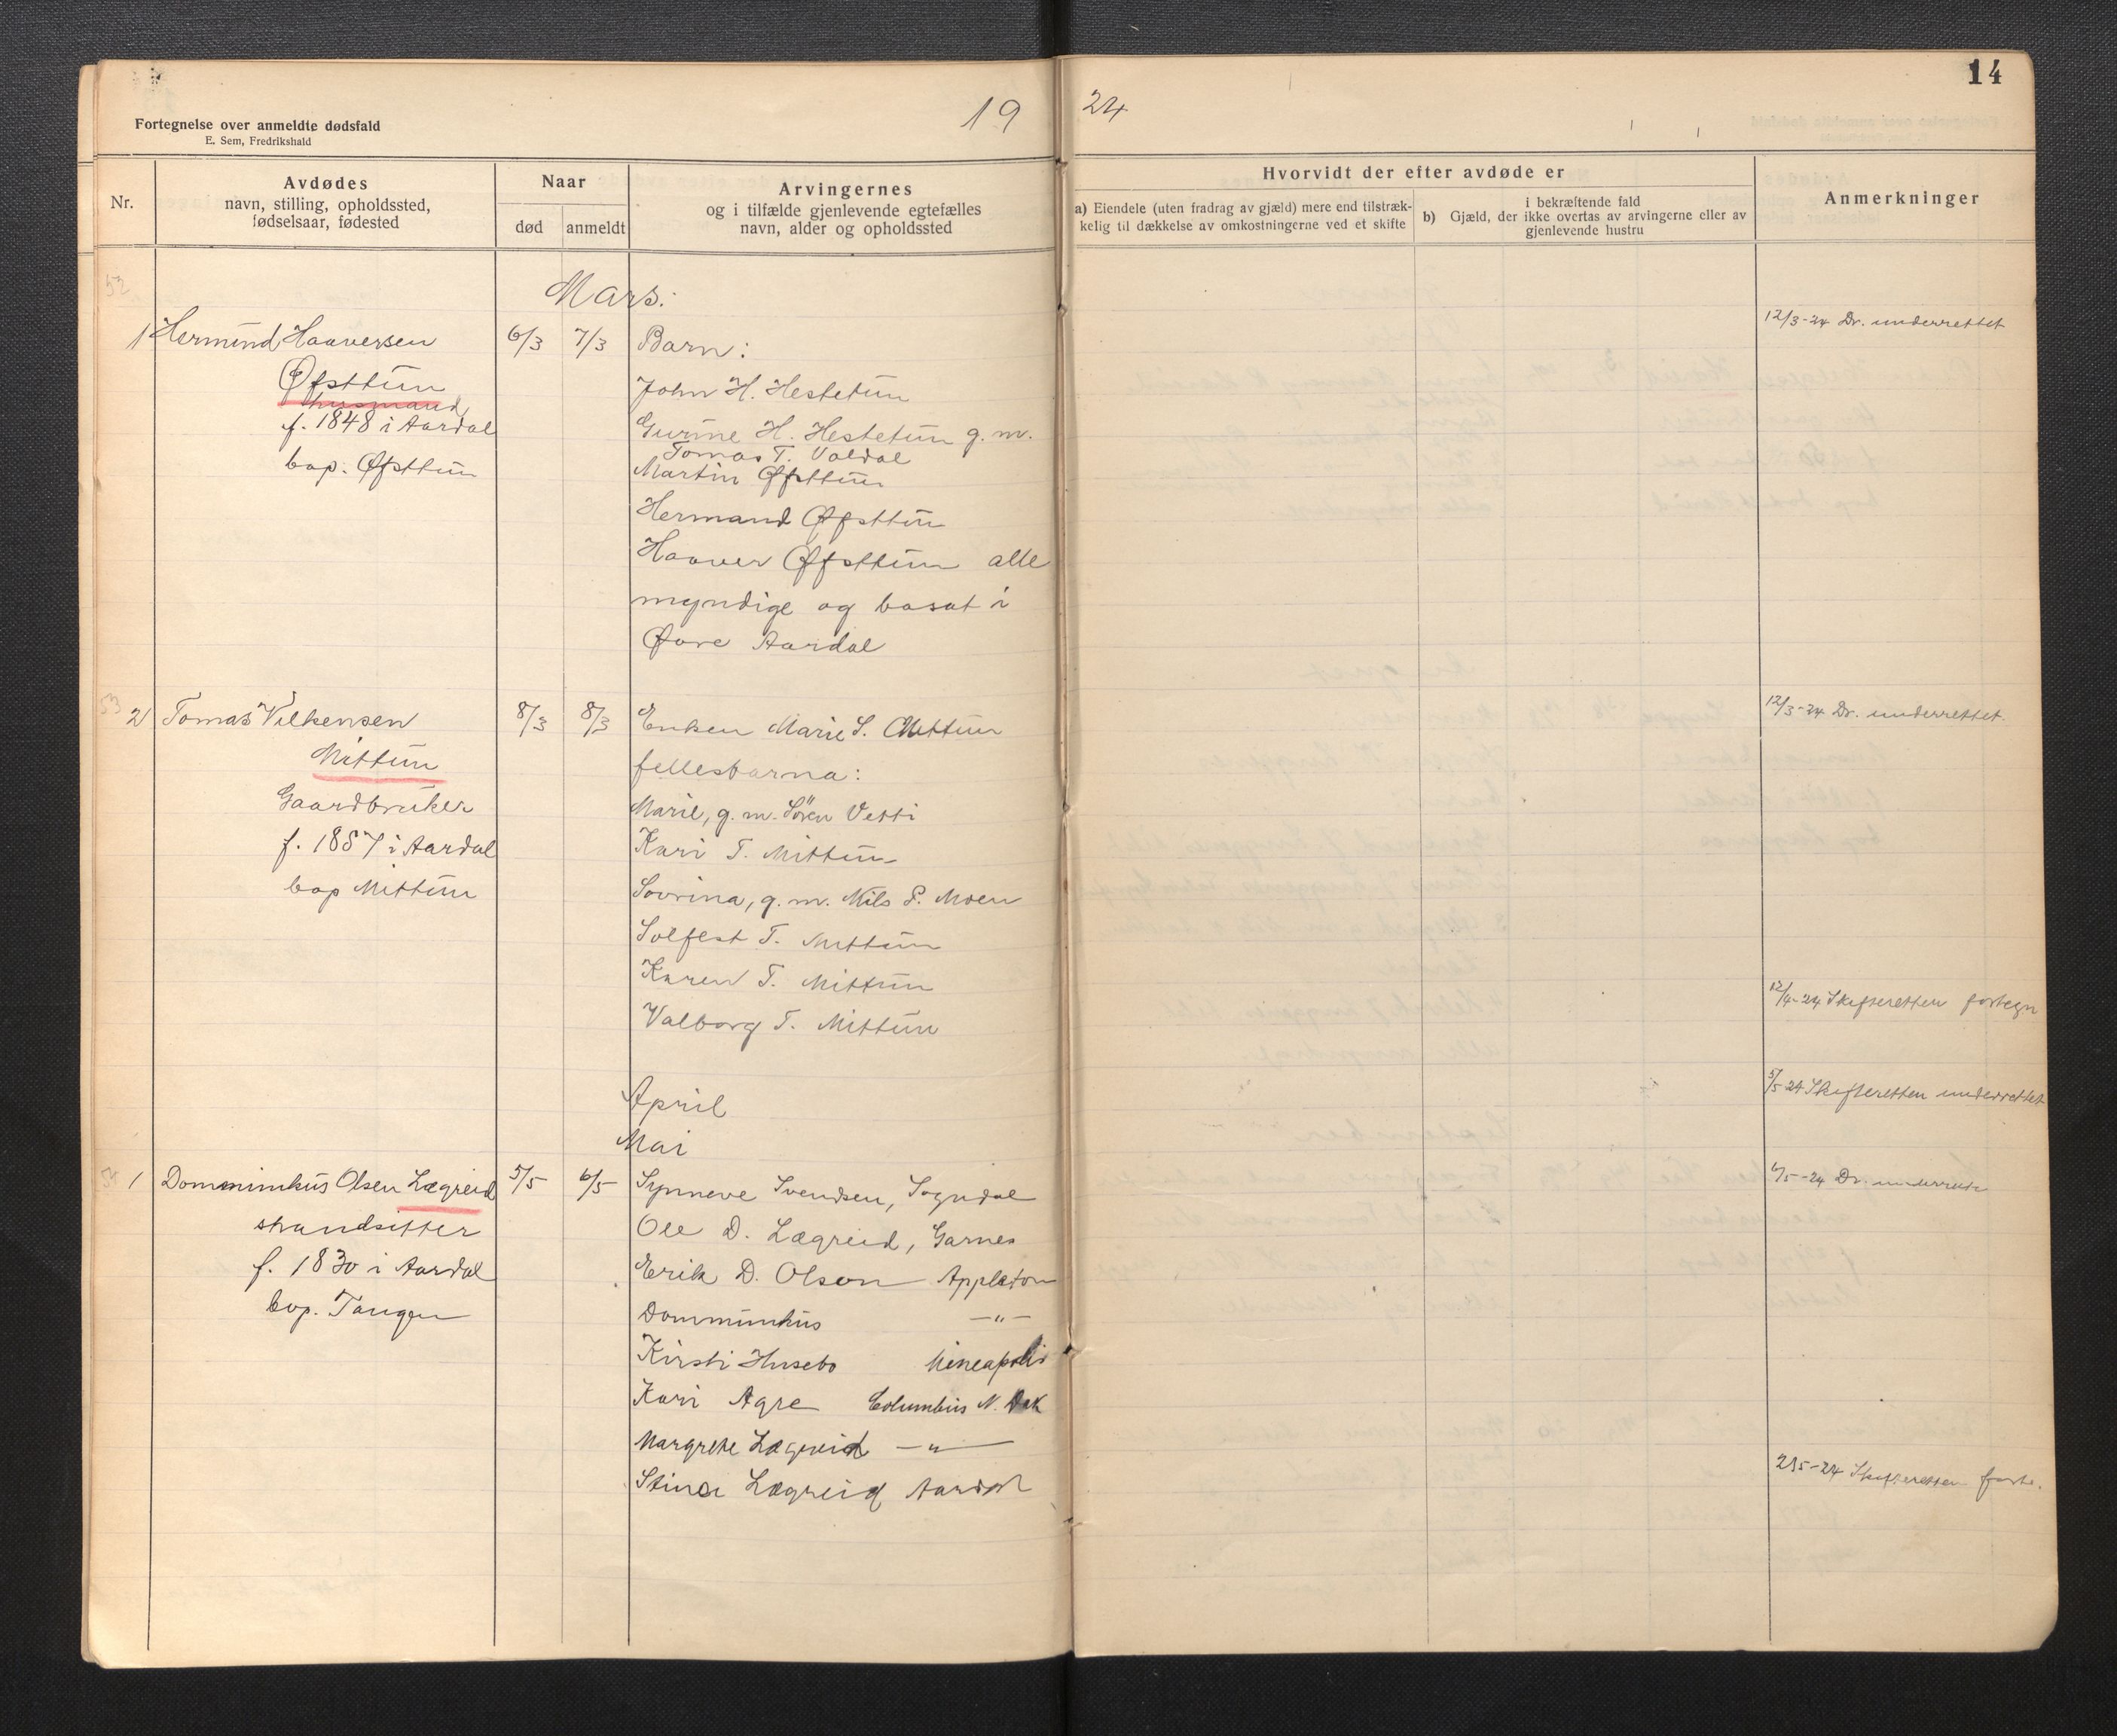 14
Fortegnelse over anmeldte dødsfald
E. Sem, Fredrikshald
19 24
Nr.
Avdødes
navn, stilling, opholdssted,
fødselsaar, fødested
Naar
død
anmeldt
Arvingernes
og i tilfælde gjenlevende egtefælles
navn, alder og opholdssted
Hvorvidt der efter avdøde er
a) Eiendele (uten fradrag av gjæld) mere end tilstræk-
kelig til dækkelse av omkostningerne ved et skifte
i bekræftende fald
b) Gjæld, der ikke overtas av arvingerne eller av
gjenlevende hustru
Anmerkninger
52
Mars:
1 Hermund Haaversen 6/3 7/3 Barn: 12/3-24 Dr. underrettet
Øfsttun
husmand
f. 1848 i Aardal
bop. Øfsttun
John H. Hestetun
Gurine H. Hestetun g. m.
Tomas T. Valdal
Martin Øfsttun
Hermand Øfsttun
Haaver Øfsttun alle
myndige og bosat i
Øvre Aardal
53
2 Tomas Vilkensen 8/3 8/3 Enken Marie S. Mittun 12/3-24 Dr. underrettet.
Mittun
Gaardbruker
f. 1857 i Aardal
bop Mittun
fellesbarna:
Marie, g. m. Søren Vetti
Kari T. Mittun
Sovrina, g. m. Nils P. Moen
Solfest T. Mittun
Karen T. Mittun
Valborg T. Mittun
12/4-24 Skifteretten fortegn
April
5/5 24 Skifteretten underrettet
Mai
54
1 Dommimkus Olsen Lægreid 5/5 6/5 Synneve Svendsen, Sogndal 6/5-24 Dr. underrette
strandsitter
f. 1830 i Aardal
bop. Tangen
Ole D. Lægreid, Garnes
Erik D. Olson Appleton
Dommimkus —"—
Kirsti Husebo Mineapolis
Kari Agre Columbus N. Dak
Margrete Lægreid —"—
Stina Lægreid Aardal
2/5-24 Skifteretten forte.